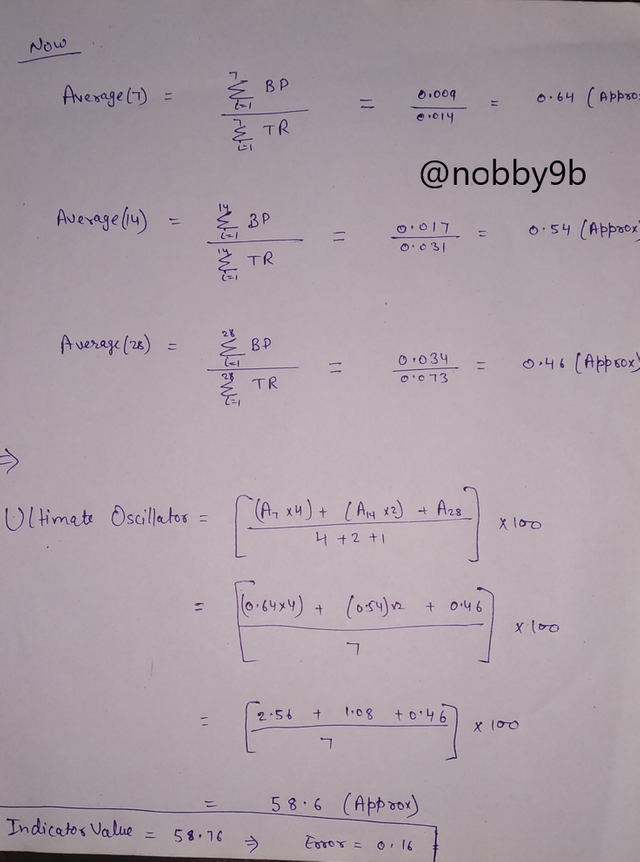 Now
Average(7) = 7∑i=1 BP / 7∑i=1 TR = 0.009/0.014 = 0.64 (Appro
@nobby9b
Average(14) = 14∑i=1 BP / 14∑i=1 TR = 0.017/0.031 = 0.54 (Approx)
Average(28) = 28∑i=1 BP / 28∑i=1 TR = 0.034/0.073 = 0.46 (Approx)
⇒
Ultimate Oscillator = [(A7 x4) + (A14 x2) + A28 / 4 + 2 + 1] x 100
= [(0.64x4) + (0.54)x2 + 0.46 / 7] x 100
= [2.56 + 1.08 + 0.46 / 7] x 100
= 58.6 (Approx)
Indicator Value = 58.76 ⇒ Error = 0.16